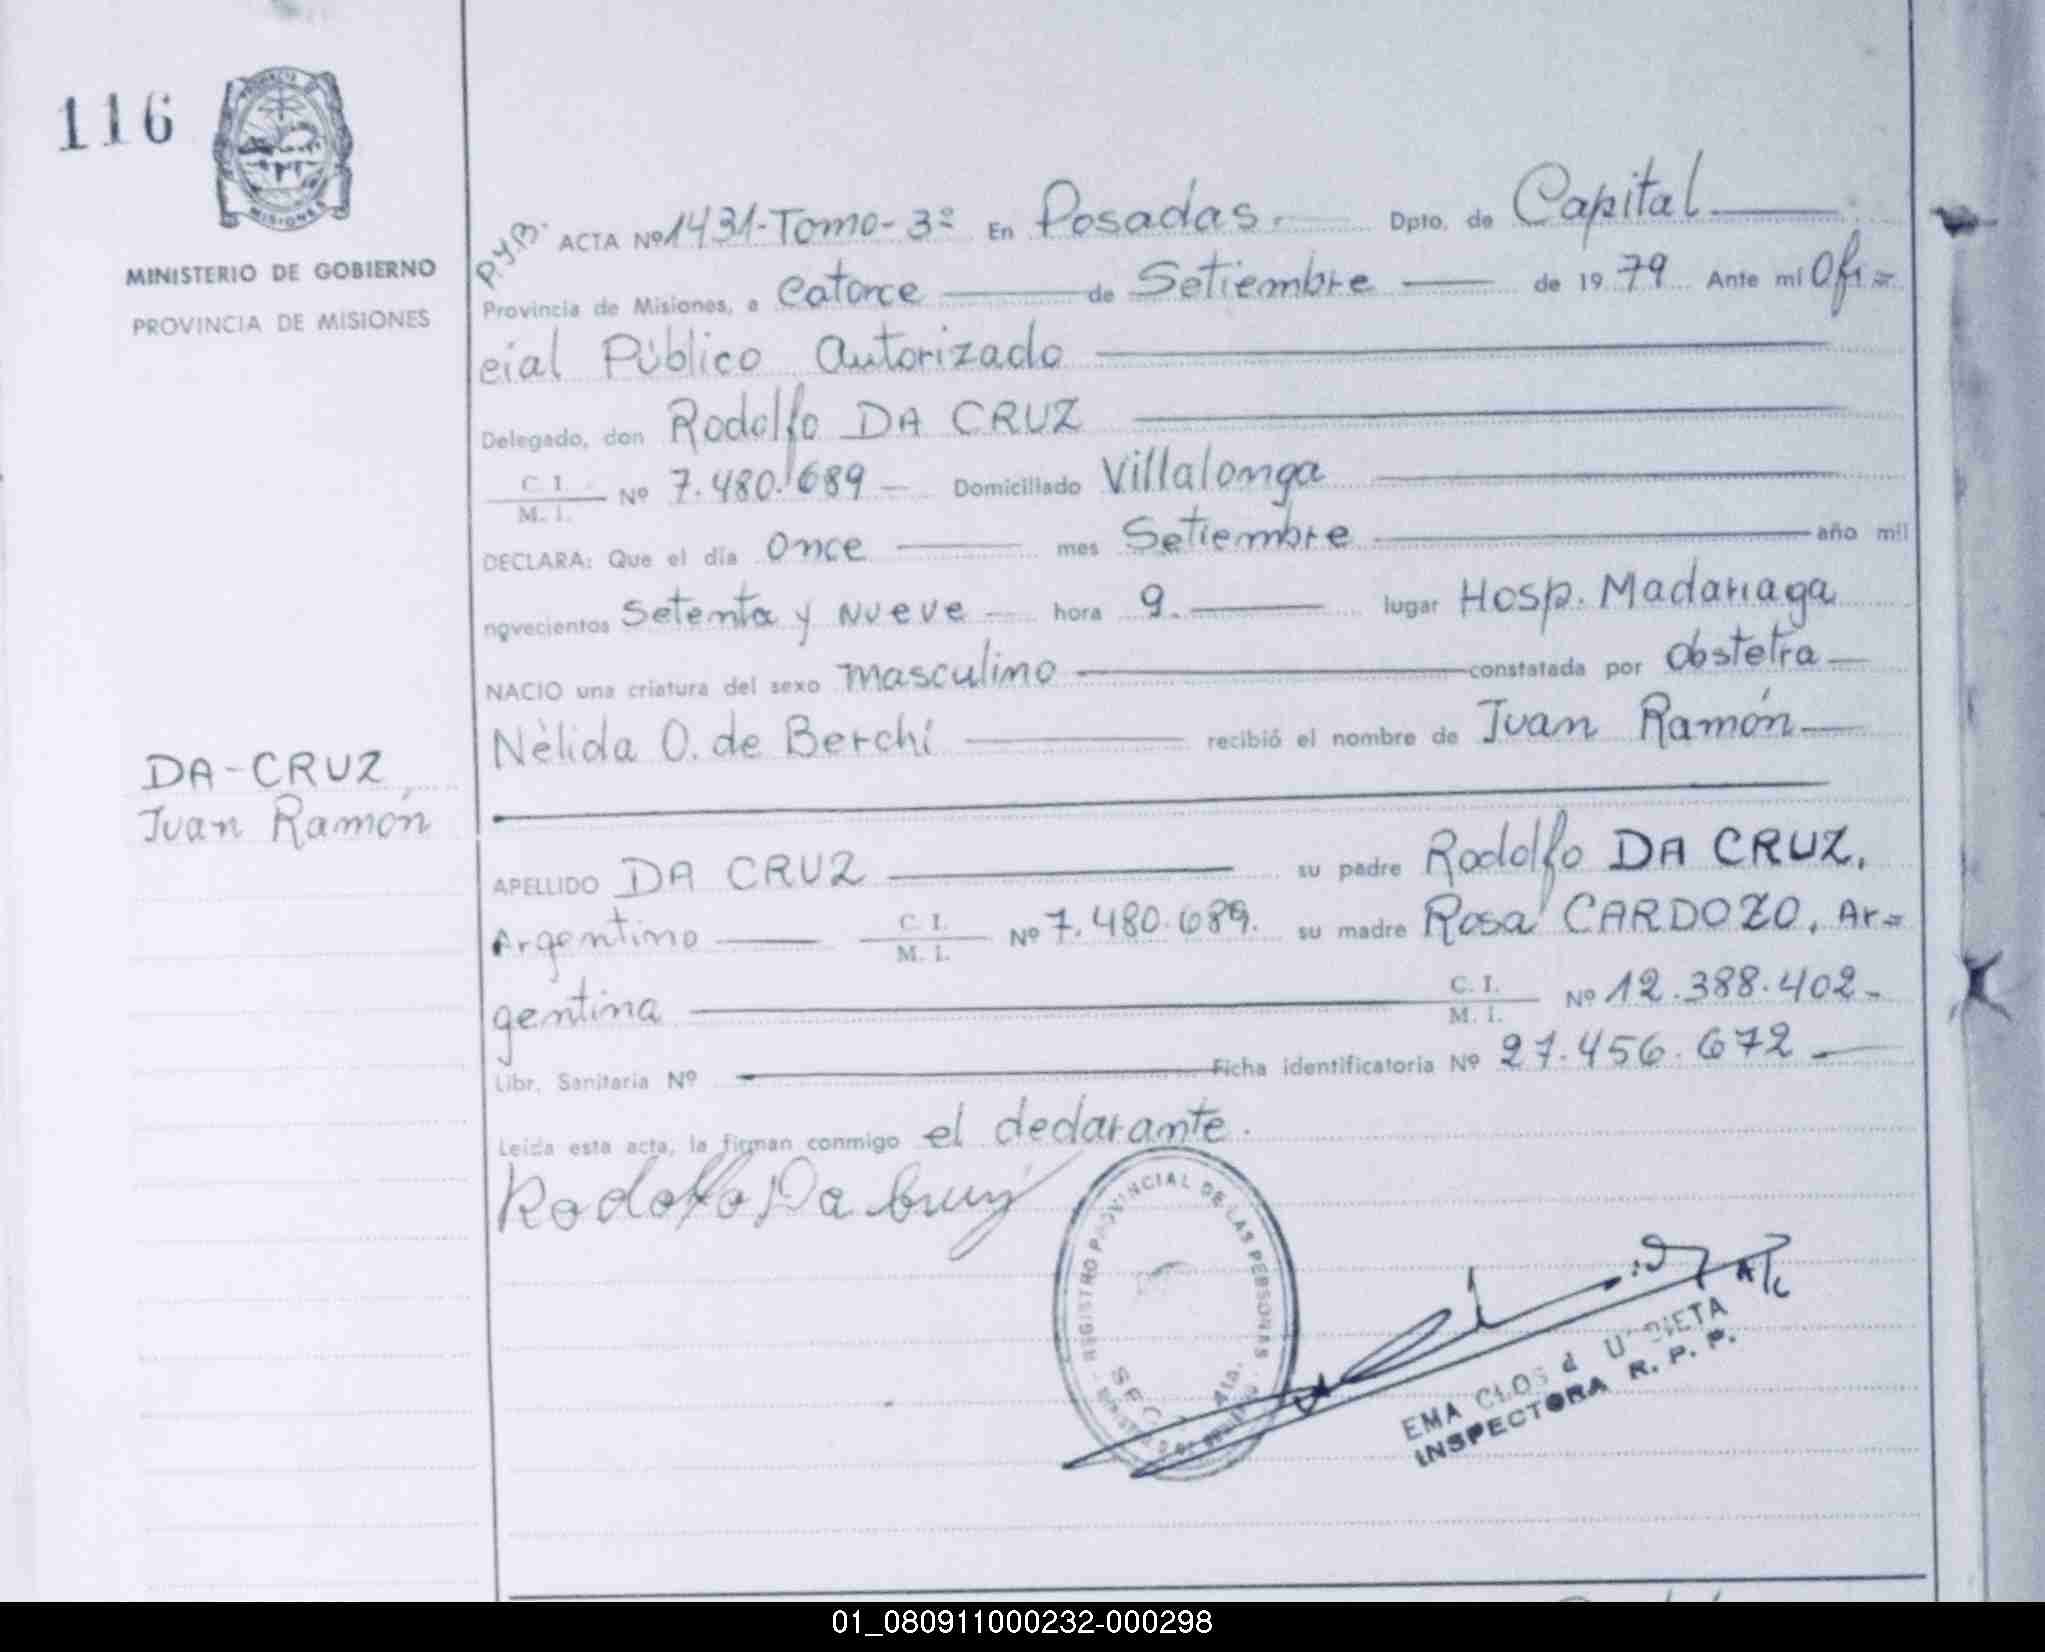 116
PROVINCIA
MISIONES
MINISTERIO DE GOBIERNO
PROVINCIA DE MISIONES
P.y.B.
ACTA Nº 1431-Tomo-3º En Posadas. Dpto. de Capital
Provincia de Misiones, a Catorce de Setiembre de 1979 Ante mi Ofi=
cial Público Autorizado
Delegado, don Rodolfo DA CRUZ
C. I. / M. I. Nº 7.480.689 Domiciliado Villalonga
DECLARA: Que el día once mes Setiembre año mil
novecientos setenta y nueve hora 9. lugar Hosp. Madariaga
NACIO una criatura del sexo masculino constatada por obstetra
Nèlida O. de Berchi recibió el nombre de Juan Ramón
DA-CRUZ
Juan Ramón
APELLIDO DA CRUZ su padre Rodolfo DA CRUZ.
Argentino C. I. / M. I. Nº 7.480.689. su madre Rosa CARDOZO. Ar=
gentina C. I. / M. I. Nº 12.388.402-
Libr. Sanitaria Nº Ficha identificatoria Nº 27.456.672
Leída esta acta, la firman conmigo el declarante.
Rodolfo Da Cruz
REGISTRO PROVINCIAL DE LAS PERSONAS
SEC 4ta.
EMA
INSPECTORA R. P. P.
01_080911000232-000298